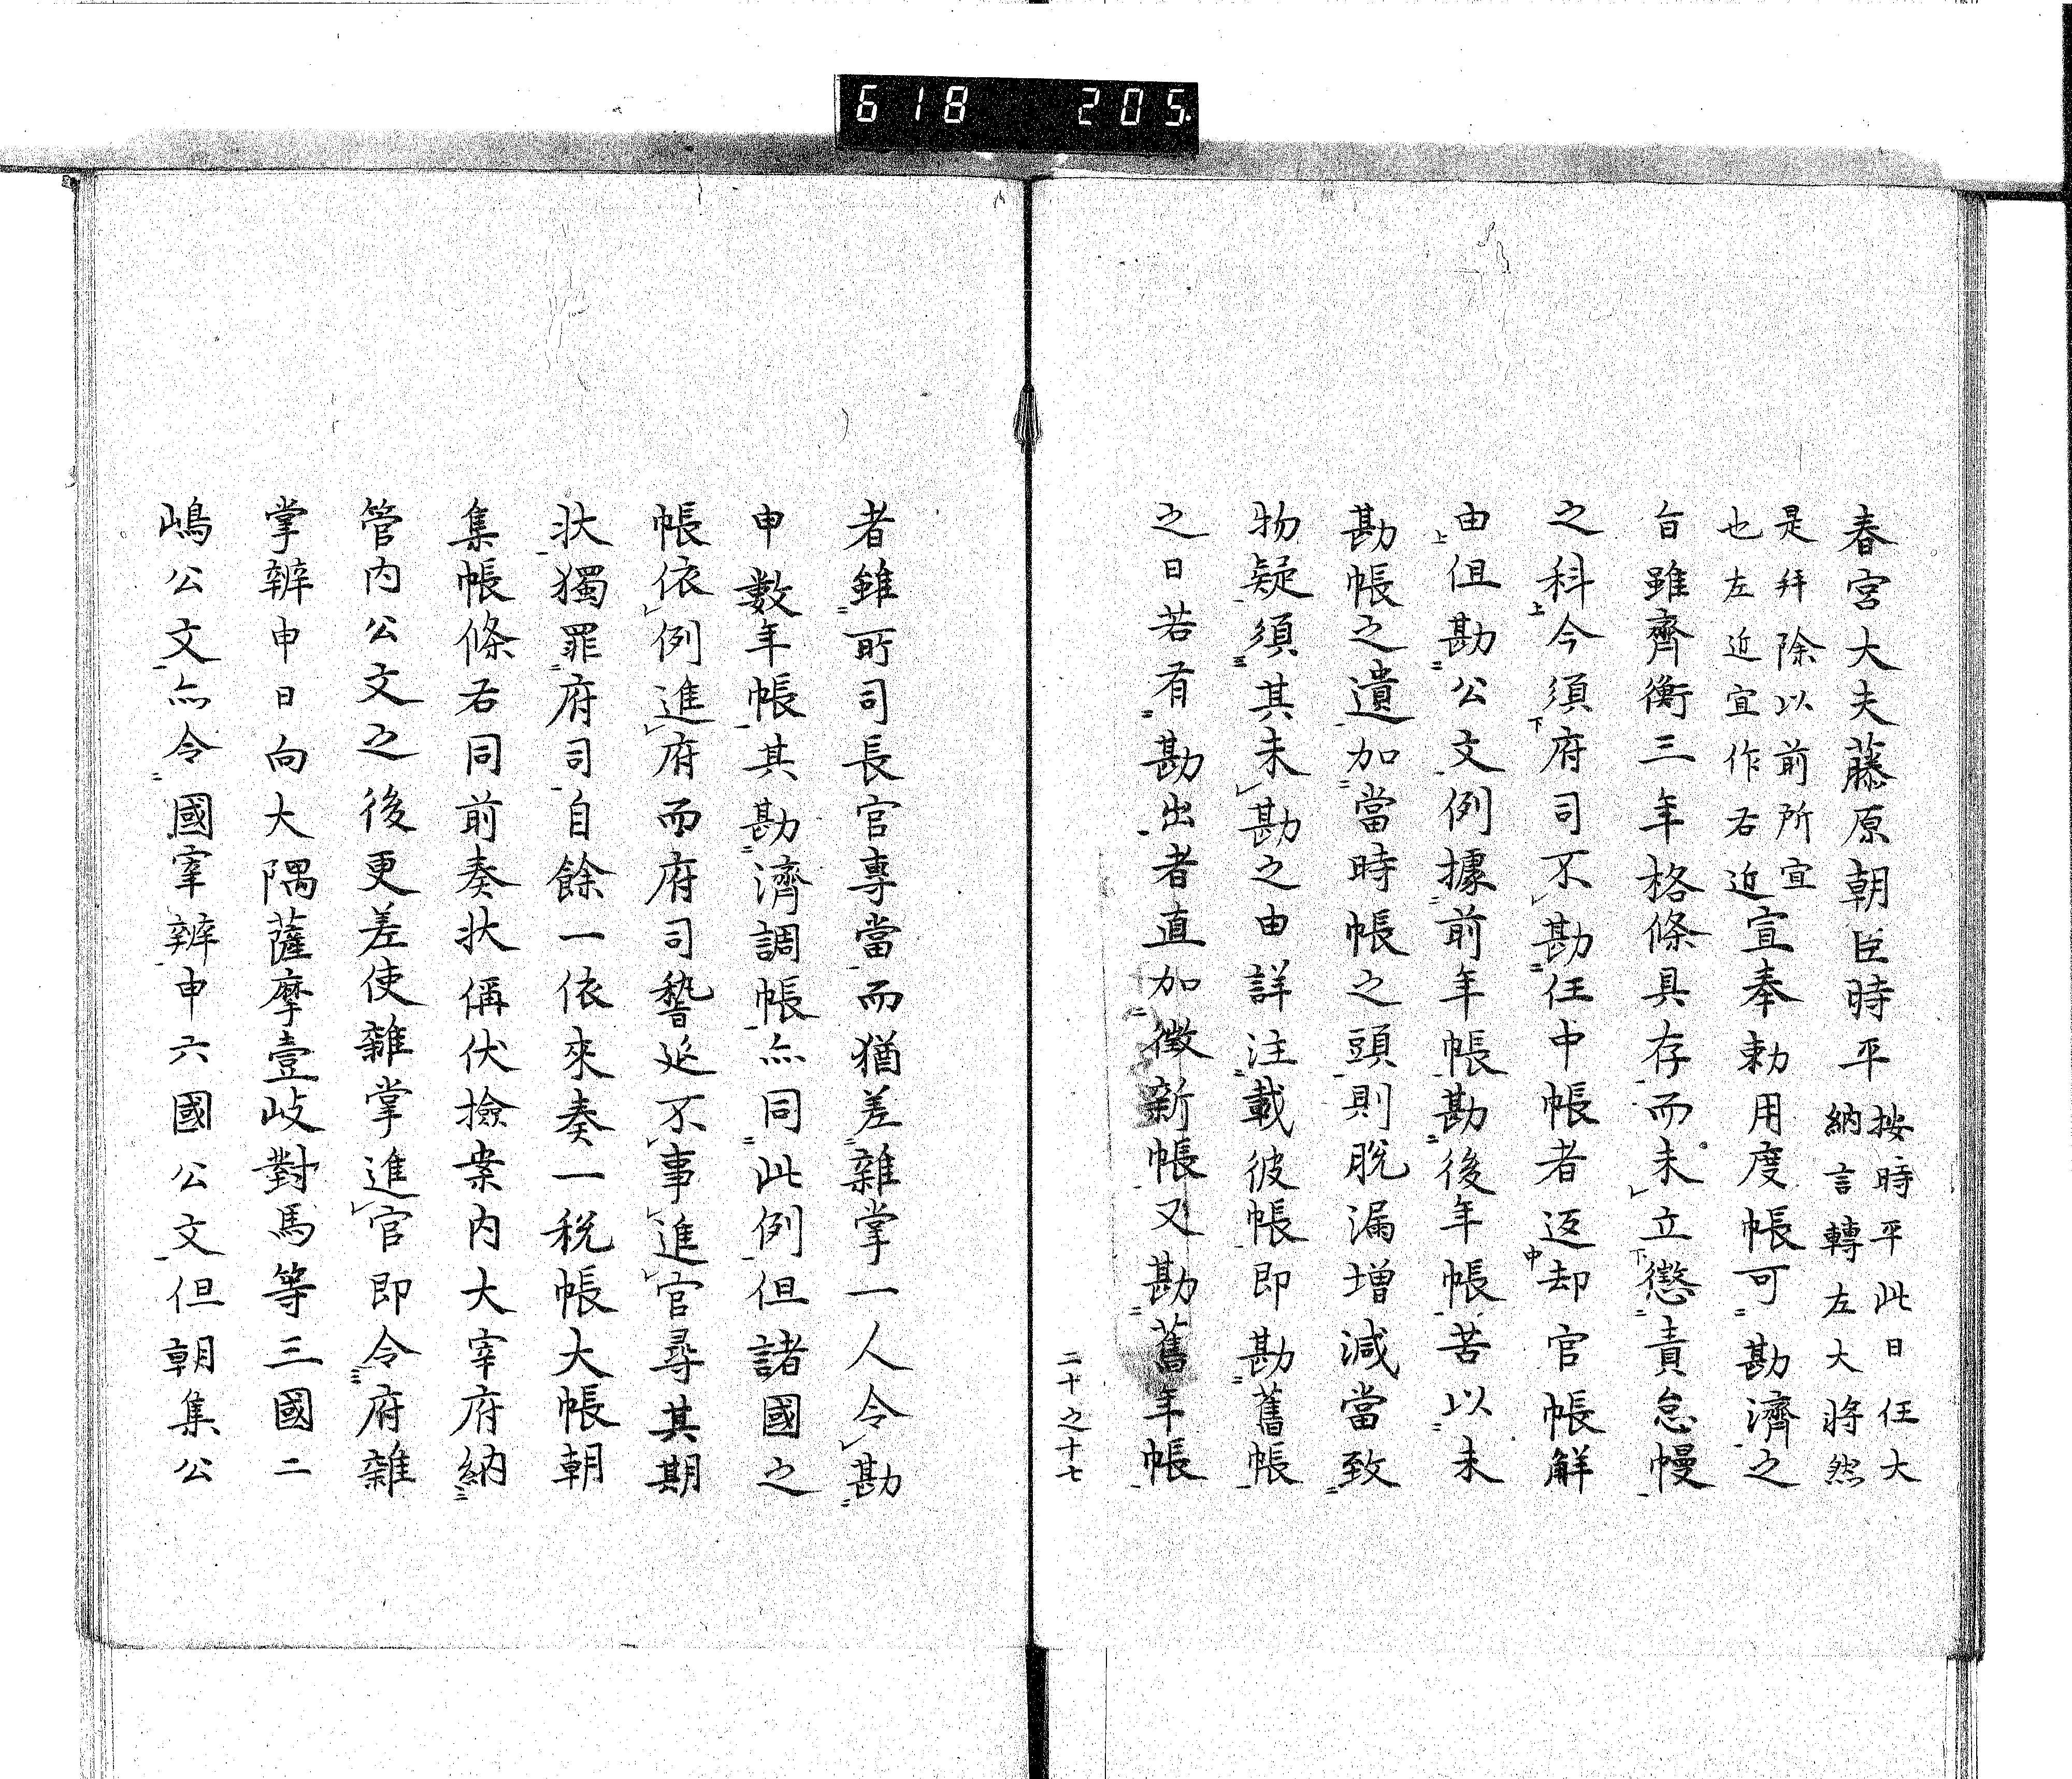 618 205
春宮大夫藤原朝臣時平按時平此日任大
納言轉左大將然
是拜除以前所宣
也左近宜作右近宣奉勅用度帳可勘濟之
旨雖齊衡三年格條具存而未立懲責怠慢
之科今須府司不勘任中帳者返却官帳解
由但勘公文例據前年帳勘後年帳苦以未
勘帳之遺加當時帳之頭則脫漏增減當致
物疑須其未勘之由詳注載彼帳即勘舊帳
之日若有勘出者直加徵新帳又勘舊年帳
二十之十七
者雖所司長官專當而猶差雜掌一人令勘
申數年帳其勘濟調帳亦同此例但諸國之
帳依例進府而府司暫延不事進官尋其期
狀獨罪府司自餘一依來奏一稅帳大帳朝
集帳條右同前奏狀偁伏撿案內大宰府納
管內公文之後更差使雜掌進官即令府雜
掌辨申日向大隅薩摩壹岐對馬等三國二
嶋公文亦令國宰辨申六國公文但朝集公